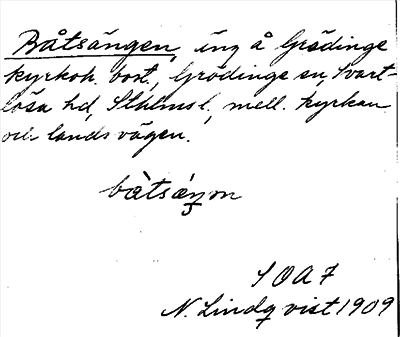 Båtsängen, äng å Grödinge
kyrkoh. bost., Grödinge sn, Svart-
lösa hd, Sthlms l., mell. kyrkan
och landsvägen.
bàtsáŋɔn
SOA 7
N. Lindqvist 1909